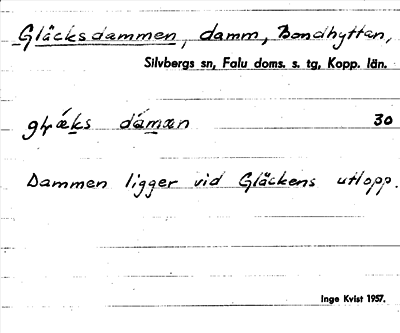 Gläcksdammen, damm, Bondhyttan,
Silvbergs sn, Falu doms. s. tg, Kopp. län.
glǽks dámæn 30
Dammen ligger vid Gläckens utlopp.
Inge Kvist 1957.